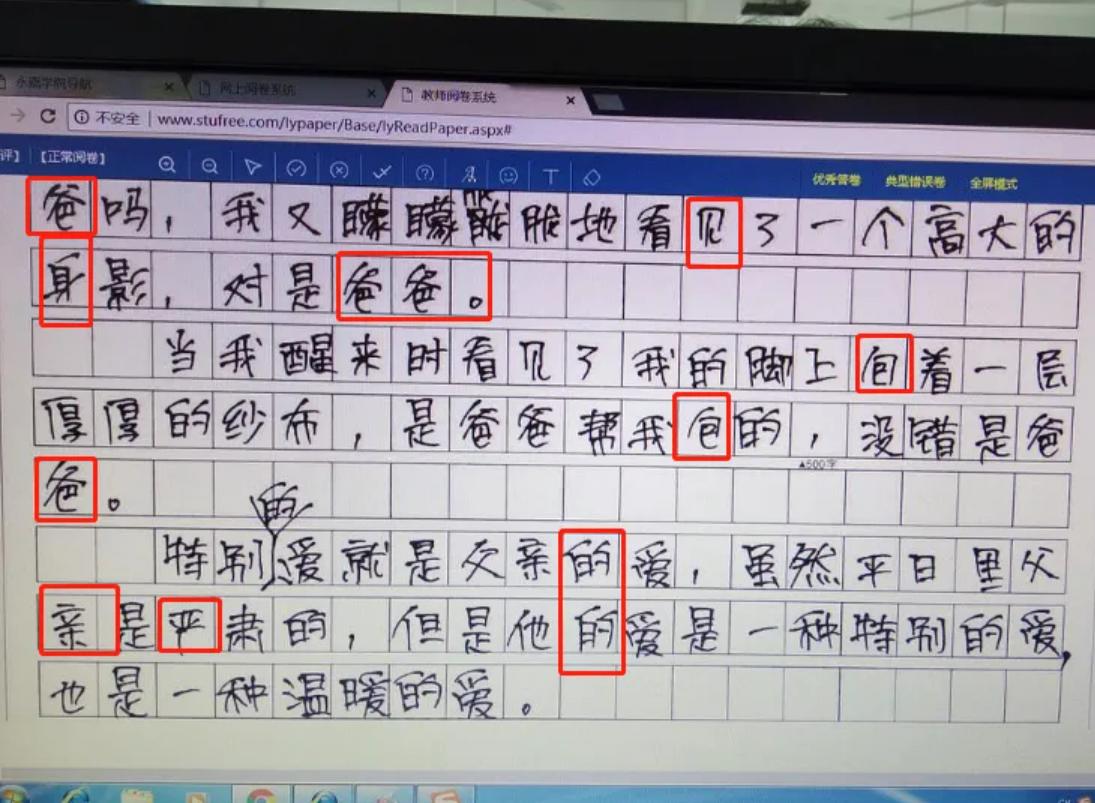 永嘉学院导航 网上阅卷系统 教师阅卷系统
不安全 www.stufree.com/lypaper/Base/lyReadPaper.aspx#
评】 【正常阅卷】 优秀答卷 典型错误卷 全屏模式
爸吗，我又朦朦胧胧地看见了一个高大的
身影，对是爸爸。
当我醒来时看见了我的脚上包着一层
厚厚的纱布，是爸爸帮我包的，没错是爸
▲500字
爸。
特别的爱就是父亲的爱，虽然平日里父
亲是严肃的，但是他的爱是一种特别的爱，
也是一种温暖的爱。